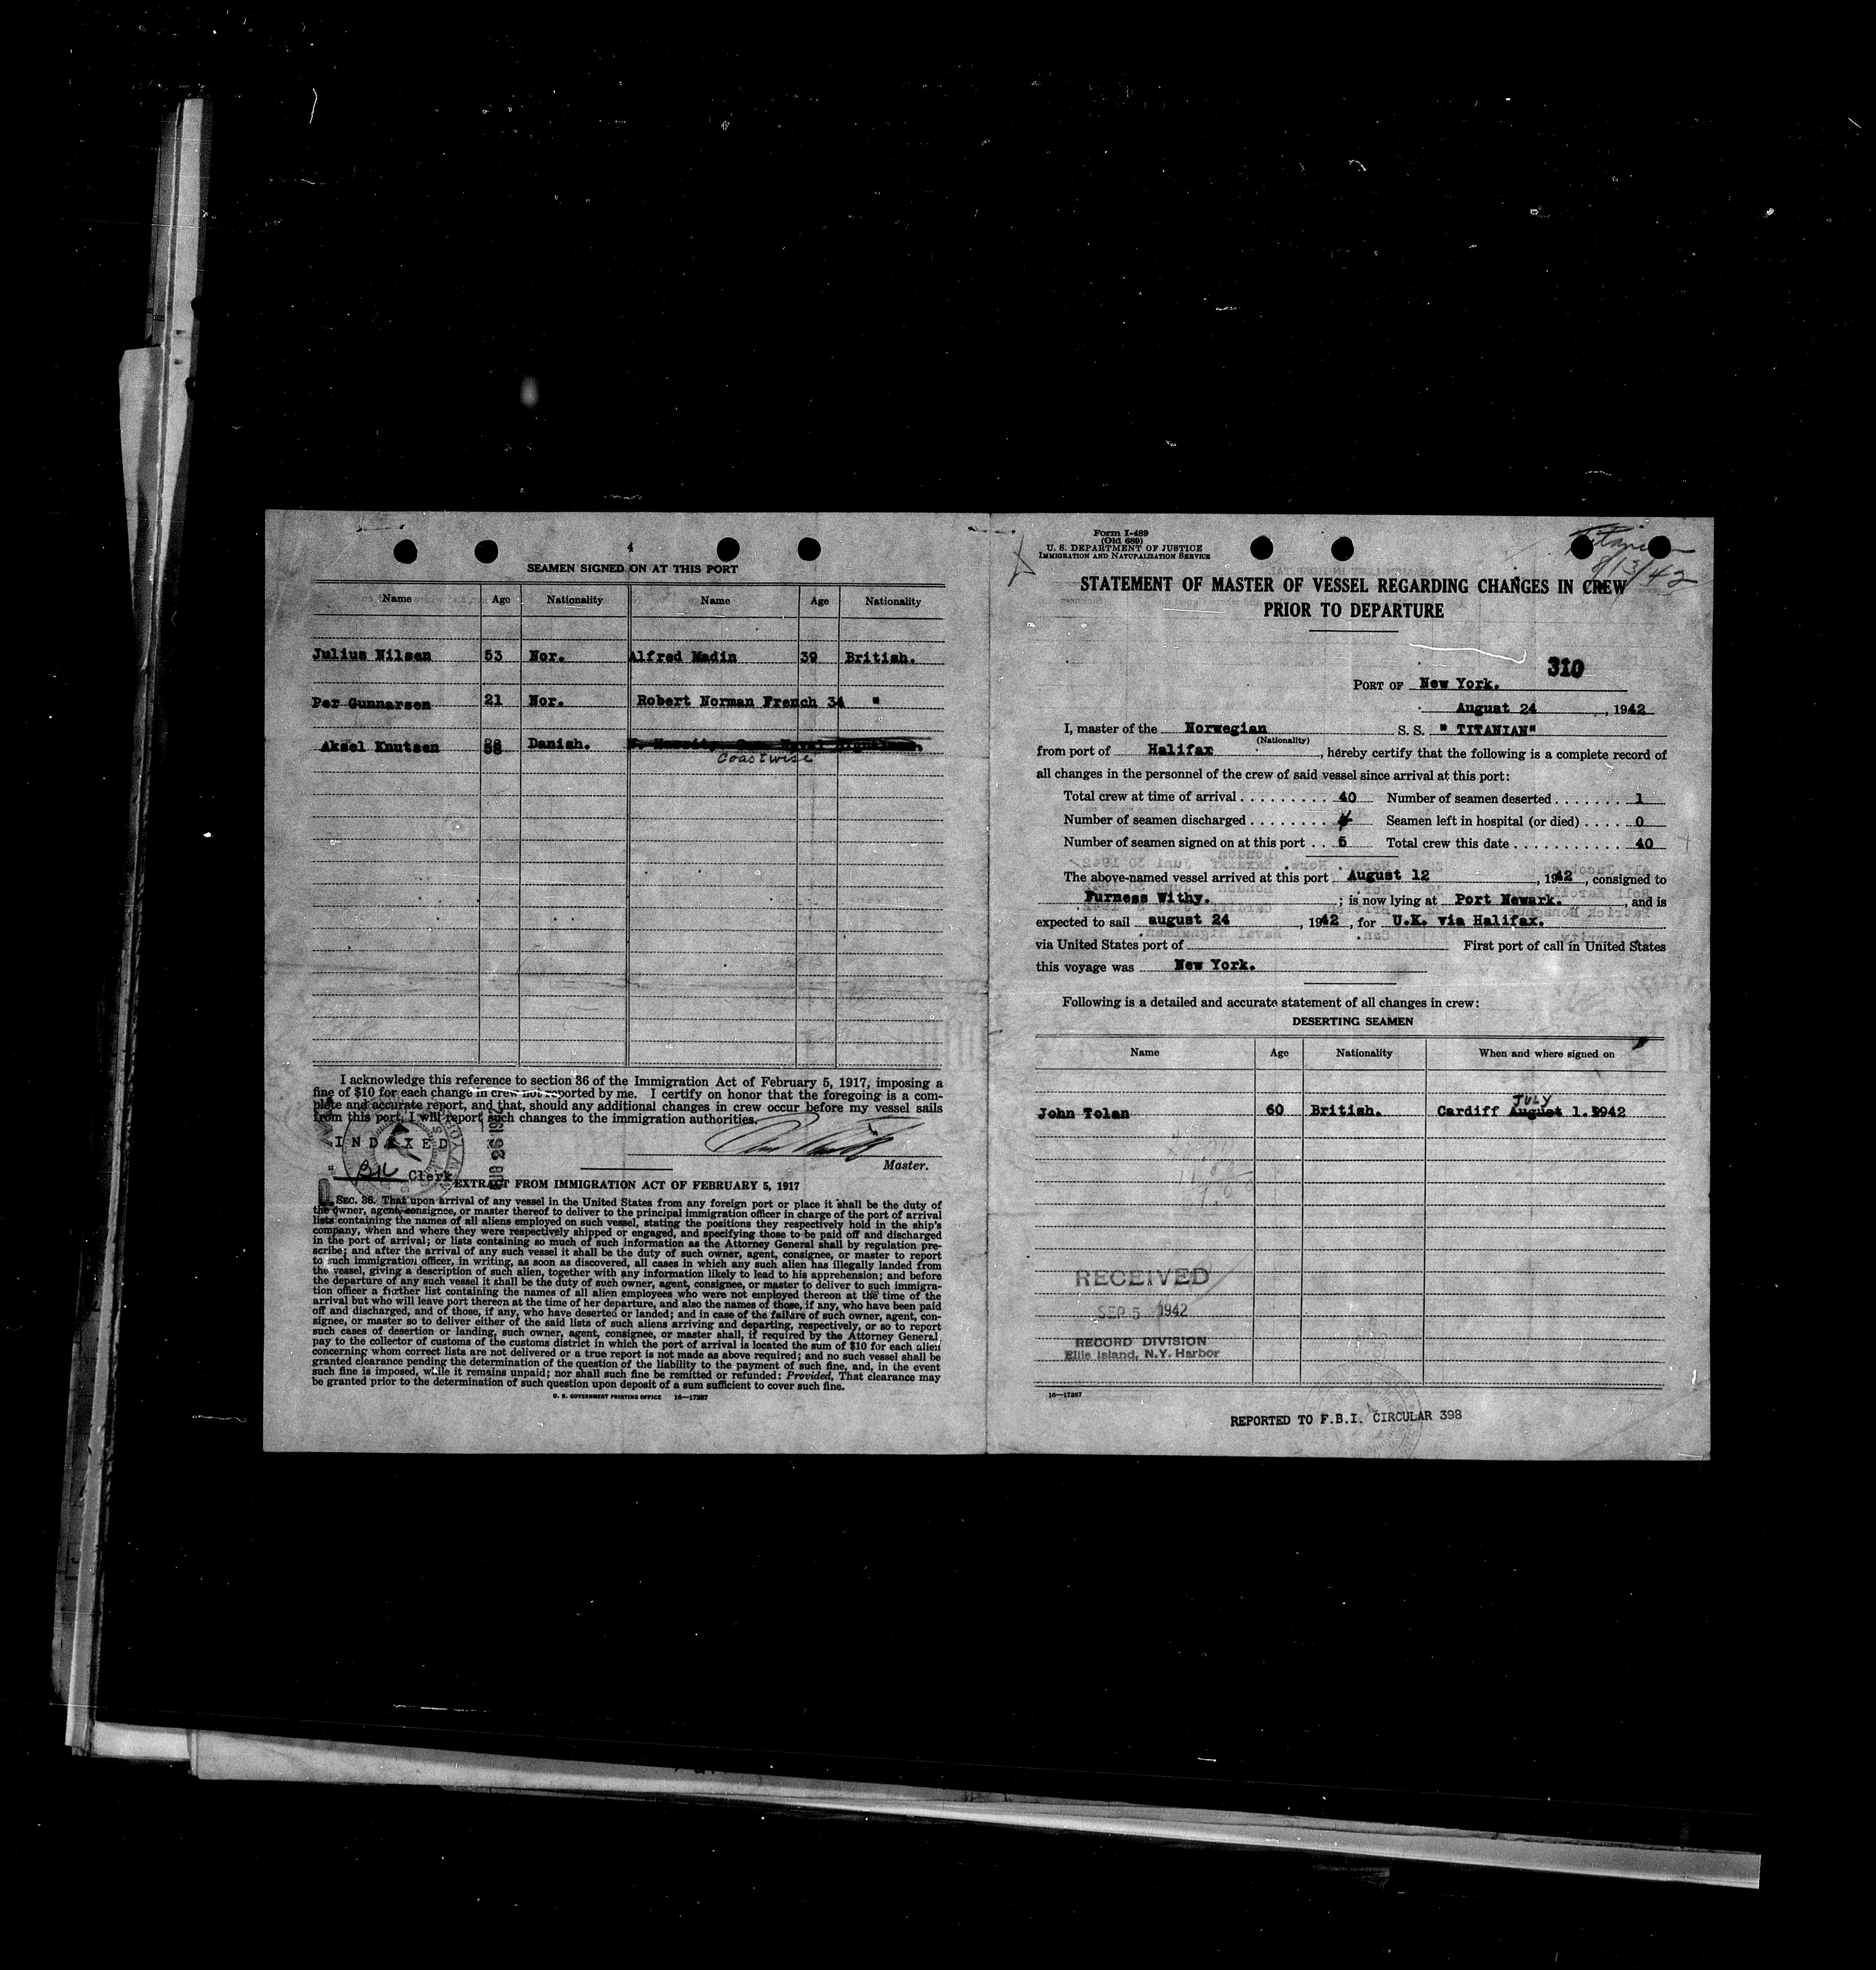 4
SEAMEN SIGNED ON AT THIS PORT
Name Age Nationality Name Age Nationality
Julius Nilsen 53 Nor. Alfred Madin 39 British.
Per Gunnarsen 21 Nor. Robert Norman French 34 "
Aksel Knutsen Danish.
Coastwise
I acknowledge this reference to section 36 of the Immigration Act of February 5, 1917, imposing a
fine of $10 for each change in crew not reported by me. I certify on honor that the foregoing is a com-
plete and accurate report, and that, should any additional changes in crew occur before my vessel sails
from this port, I will report such changes to the immigration authorities.
INDEXED
Master.
Clerk
EXTRACT FROM IMMIGRATION ACT OF FEBRUARY 5, 1917
SEC. 36. That upon arrival of any vessel in the United States from any foreign port or place it shall be the duty of
the owner, agent, consignee, or master thereof to deliver to the principal immigration officer in charge of the port of arrival
lists containing the names of all aliens employed on such vessel, stating the positions they respectively hold in the ship's
company, when and where they were respectively shipped or engaged, and specifying those to be paid off and discharged
in the port of arrival; or lists containing so much of such information as the Attorney General shall by regulation pre-
scribe; and after the arrival of any such vessel it shall be the duty of such owner, agent, consignee, or master to report
to such immigration officer, in writing, as soon as discovered, all cases in which any such alien has illegally landed from
the vessel, giving a description of such alien, together with any information likely to lead to his apprehension; and before
the departure of any such vessel it shall be the duty of such owner, agent, consignee, or master to deliver to such immigra-
tion officer a further list containing the names of all alien employees who were not employed thereon at the time of the
arrival but who will leave port thereon at the time of her departure, and also the names of those, if any, who have been paid
off and discharged, and of those, if any, who have deserted or landed; and in case of the failure of such owner, agent, con-
signee, or master so to deliver either of the said lists of such aliens arriving and departing, respectively, or so to report
such cases of desertion or landing, such owner, agent, consignee, or master shall, if required by the Attorney General,
pay to the collector of customs of the customs district in which the port of arrival is located the sum of $10 for each alien
concerning whom correct lists are not delivered or a true report is not made as above required; and no such vessel shall be
granted clearance pending the determination of the question of the liability to the payment of such fine, and, in the event
such fine is imposed, while it remains unpaid; nor shall such fine be remitted or refunded: Provided, That clearance may
be granted prior to the determination of such question upon deposit of a sum sufficient to cover such fine.
U. S. GOVERNMENT PRINTING OFFICE 16—17387
Form I-489
(Old 689)
U. S. DEPARTMENT OF JUSTICE
IMMIGRATION AND NATURALIZATION SERVICE
Titanian
8/13/42
STATEMENT OF MASTER OF VESSEL REGARDING CHANGES IN CREW
PRIOR TO DEPARTURE
310
PORT OF New York.
August 24, 1942
I, master of the Norwegian S. S. "TITANIAN"
(Nationality)
from port of Halifax, hereby certify that the following is a complete record of
all changes in the personnel of the crew of said vessel since arrival at this port:
Total crew at time of arrival . . . . . . . . . 40 Number of seamen deserted . . . . . . . 1
Number of seamen discharged . . . . . . . . 4 Seamen left in hospital (or died) . . . . . 0
Number of seamen signed on at this port . . 5 Total crew this date . . . . . . . . . . . 40
The above-named vessel arrived at this port August 12, 1942, consigned to
Furness Withy. ; is now lying at Port Newark. , and is
expected to sail august 24, 1942, for U.K. via Halifax.
via United States port of First port of call in United States
this voyage was New York.
Following is a detailed and accurate statement of all changes in crew:
DESERTING SEAMEN
Name Age Nationality When and where signed on
JULY
John Tolan 60 British. Cardiff August 1. 1942
RECEIVED
SEP 5 1942
RECORD DIVISION
Ellis Island, N.Y. Harbor
16—17387
REPORTED TO F.B.I. CIRCULAR 398